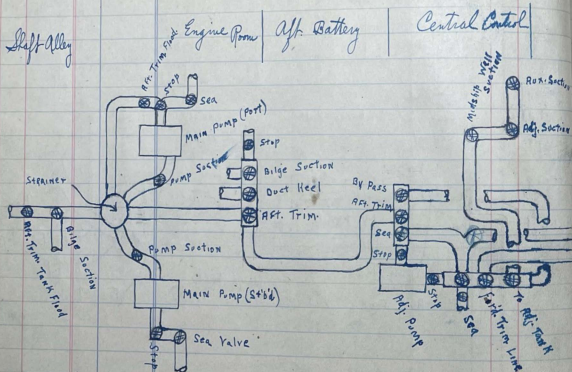 Shaft Alley
Engine Room
Aft. Battery
Central Control
Aft. Trim Flood
Stop
Sea
Main Pump (Port)
Pump Suction
Strainer
Stop
Bilge Suction
Duct Keel
Aft. Trim.
Aft. Trim Tank Flood
Bilge Suction
Pump Suction
Main Pump (St'b'd)
Stop
Sea Valve
By Pass
Aft. Trim
Sea
Stop
Adj. Pump
Stop
Sea
For'd Trim Line
To Adj. Tank
Midship Well Suction
Aux. Suction
Adj. Suction